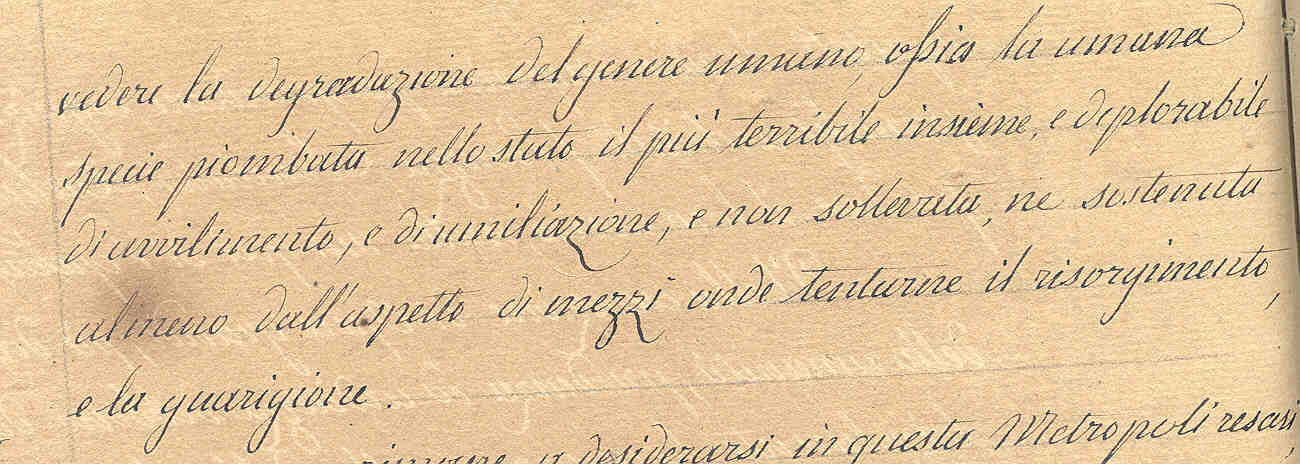 vedere la degradazione del genere umano, ossia la umana
specie piombata nello stato il più terribile insieme, e deplorabile
di avvilimento, e di umiliazione, e non sollevata, ne sostenuta
almeno dall'aspetto di mezzi onde tentarne il risorgimento,
e la guarigione.
rimane a desiderarsi in questa Metropoli resasi